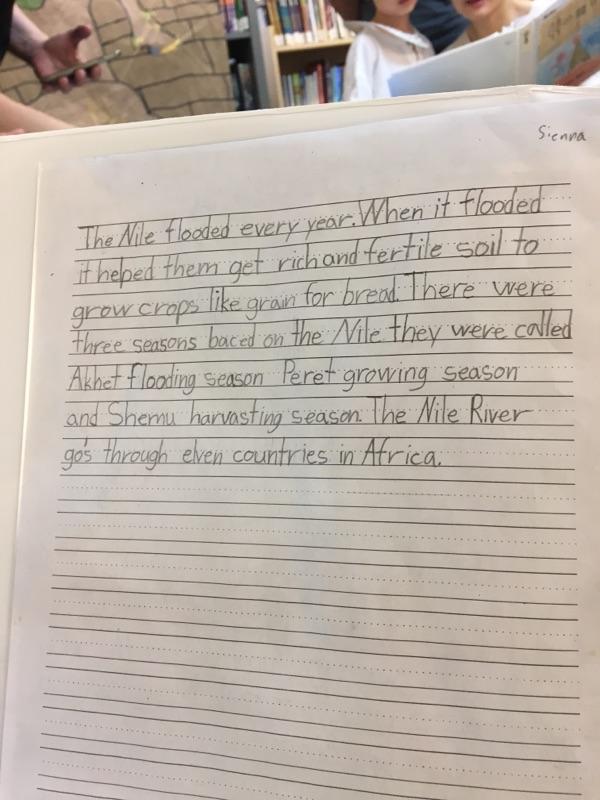 Sienna
The Nile flooded every year. When it flooded
it helped them get rich and fertile soil to
grow crops like grain for bread. There were
three seasons baced on the Nile they were called
Akhet flooding season Peret growing season
and Shemu harvasting season. The Nile River
go's through elven countries in Africa.